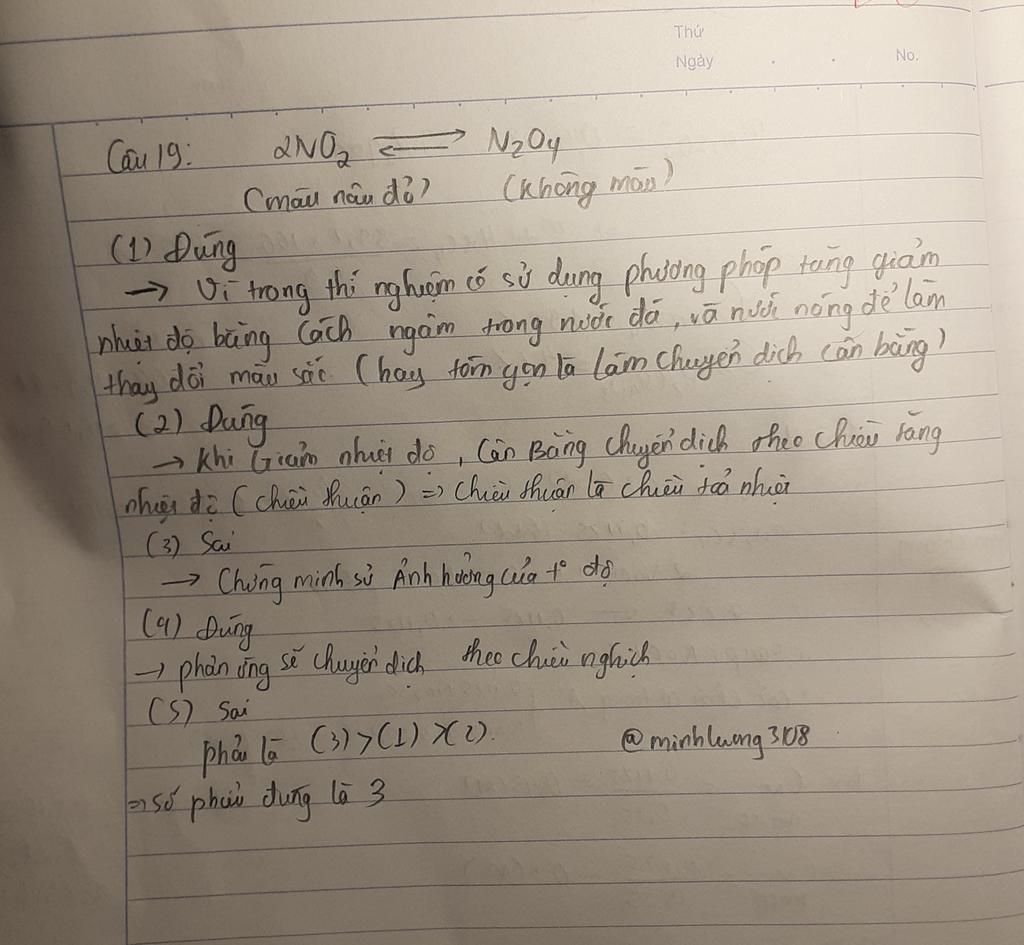 Thứ
Ngày . . No.
Câu 19: 2NO2 ⇌ N2O4
(màu nâu đỏ) (không màu)
(1) Đúng
→ Vì trong thí nghiệm có sử dụng phương pháp tăng giảm
nhiệt độ bằng cách ngâm trong nước đá, và nước nóng để làm
thay đổi màu sắc (hay tóm gọn là làm chuyển dịch cân bằng)
(2) Đúng
→ Khi Giảm nhiệt độ, Cân Bằng chuyển dịch theo chiều tăng
nhiệt độ (chiều thuận) => chiều thuận là chiều toả nhiệt
(3) Sai
→ Chứng minh sử Ảnh hưởng của t° độ
(4) Đúng
→ phản ứng sẽ chuyển dịch theo chiều nghịch
(5) Sai
phải là (3) > (1) > (2).
@minhluong3108
=> số phát đúng là 3